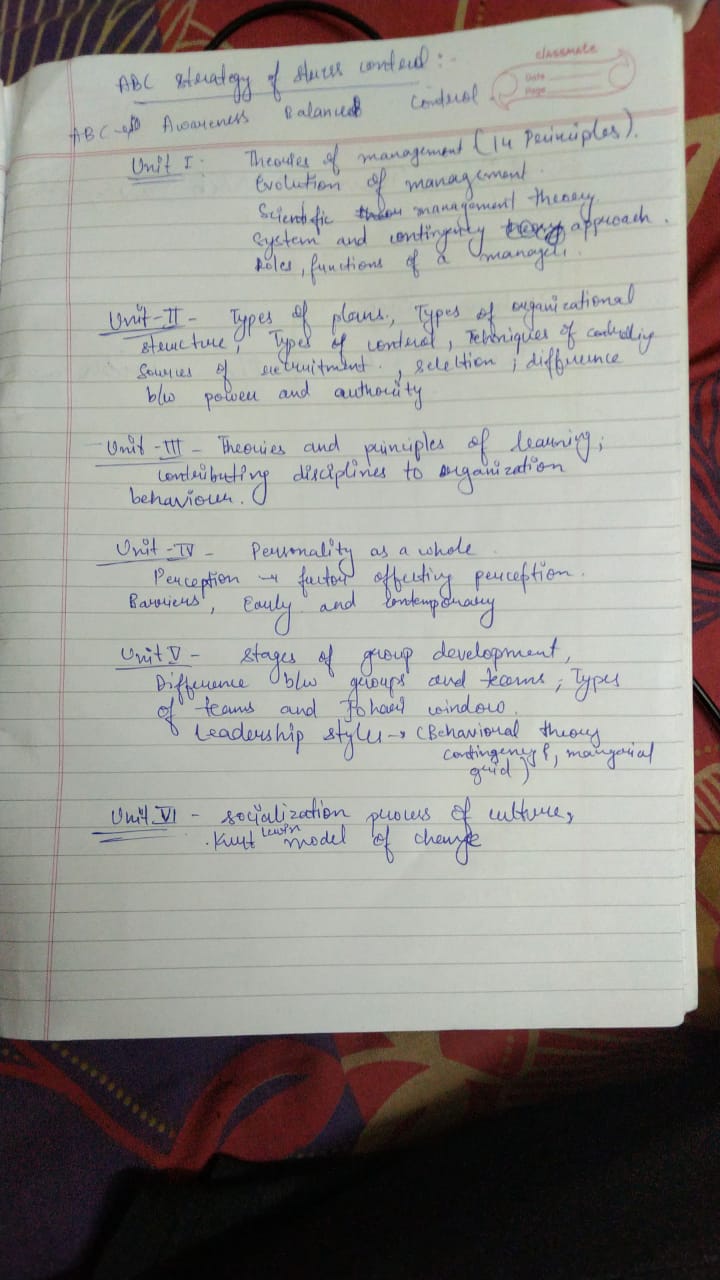 ABC strategy of stress control :-
classmate
Date
Page
ABC → Awareness Balanced Control
Unit I : Theories of management (14 Principles).
Evolution of management.
Scientific management theory
System and contingency approach.
Roles, functions of a manager.
Unit-II - Types of plans, Types of organizational
structure, Types of control, Techniques of controlling
Sources of recruitment, selection ; difference
b/w power and authority
Unit-III - Theories and principles of learning;
contributing disciplines to organization
behaviour.
Unit-IV - Personality as a whole
Perception → factors affecting perception.
Barriers, Early and contemporary
Unit V - Stages of group development,
Difference b/w groups and teams ; Types
of teams and Johari window.
Leadership styles → (Behavioral theory
contingency, mangorial
grid)
Unit VI - socialization process of culture,
Kurt lewin model of change